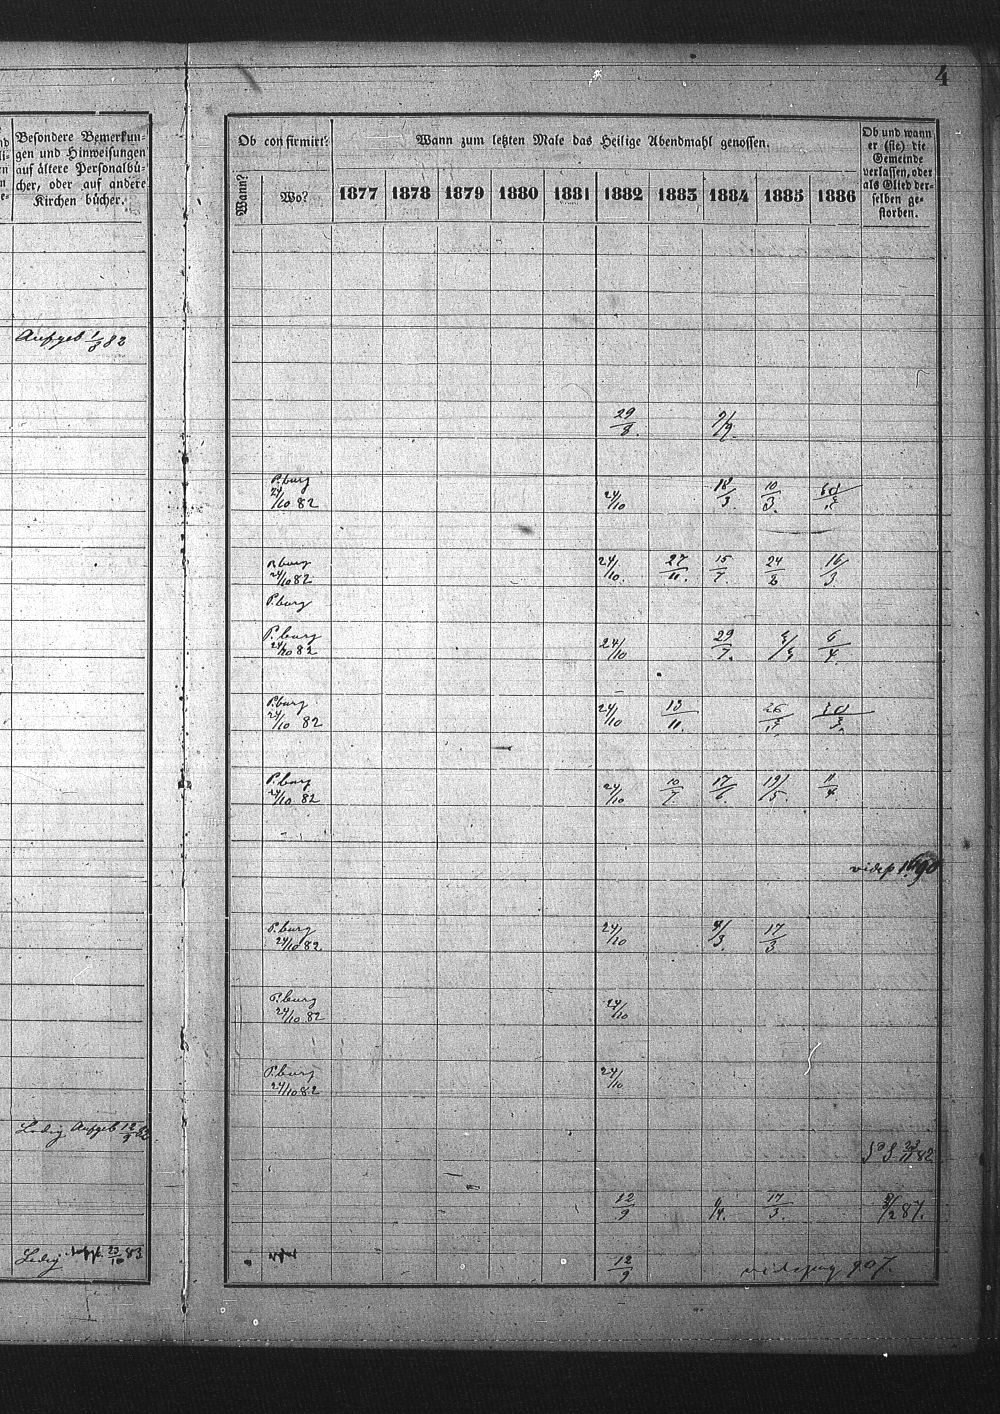 4
Besondere Bemerkun-
gen und Hinweisungen
auf ältere Personalbü-
cher, oder auf andere
Kirchen bücher.
Aufgeb 1/8 82
Ledig Aufgeb 12/9 82
Ledig 23/10 83
Ob confirmirt?
Wann zum letzten Male das Heilige Abendmahl genossen.
Ob und wann
er (sie) die
Gemeinde
verlassen, oder
als Glied der-
selben ge-
storben.
Wann? Wo? 1877 1878 1879 1880 1881 1882 1883 1884 1885 1886
29/8.
P.burg
24/10 82 24/10 18/3. 10/3.
P.burg
24/10 82 24/10. 27/11. 15/7 24/2 16/3.
P.burg
P.burg
24/10 82 24/10 29/7. 6/4.
P.burg
24/10 82 24/10 13/11. 26/5
P.burg
24/10 82 24/10 10/7. 17/6. 19/5. 11/4.
P.burg
24/10 82 24/10 4/3. 17/3
P.burg
24/10 82 24/10
P.burg
24/10 82 24/10
23/11 82
12/9 17/3. 87.
12/9 907.